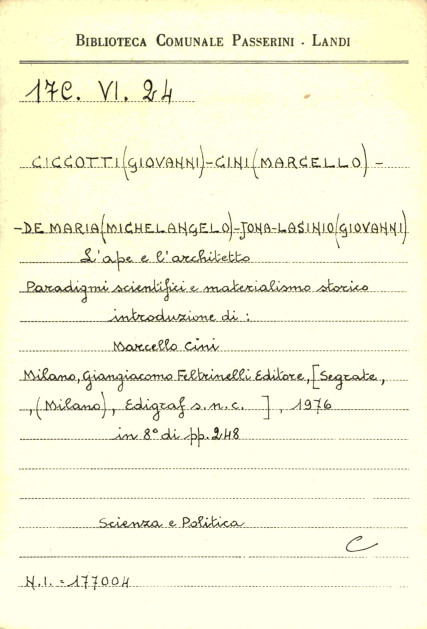 BIBLIOTECA COMUNALE PASSERINI - LANDI
17C. VI. 24
CICCOTTI (GIOVANNI) - CINI (MARCELLO) -
- DE MARIA (MICHELANGELO) - JONA-LASINIO (GIOVANNI)
L'ape e l'architetto
Paradigmi scientifici e materialismo storico
introduzione di :
Marcello Cini
Milano, Giangiacomo Feltrinelli Editore, [Segrate,
, (Milano), Edigraf s.n.c. ], 1976
in 8° di pp. 248
Scienza e Politica
C
N.I. = 177004